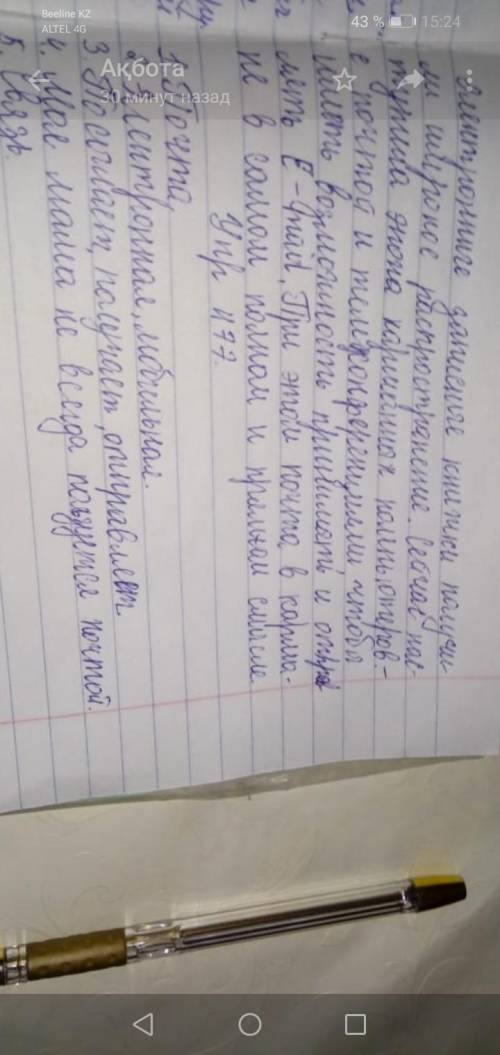 Beeline KZ
ALTEL 4G
43 % 15:24
Ақбота
30 минут назад
записные книжки получи
ли широкое распространение. Сейчас нас-
тупила эпоха карманных
е почтой и телеконференциями чтобы
иметь возможность принимать и отпра
лять E-mail. При этом почта в карма-
не в самом полном и прямом смысле
Упр 477.
Почта
электронная, мобильная.
3 Посылает, получает, отправляет.
4. Моя мама не всегда пользуется почтой.
5. Связь.